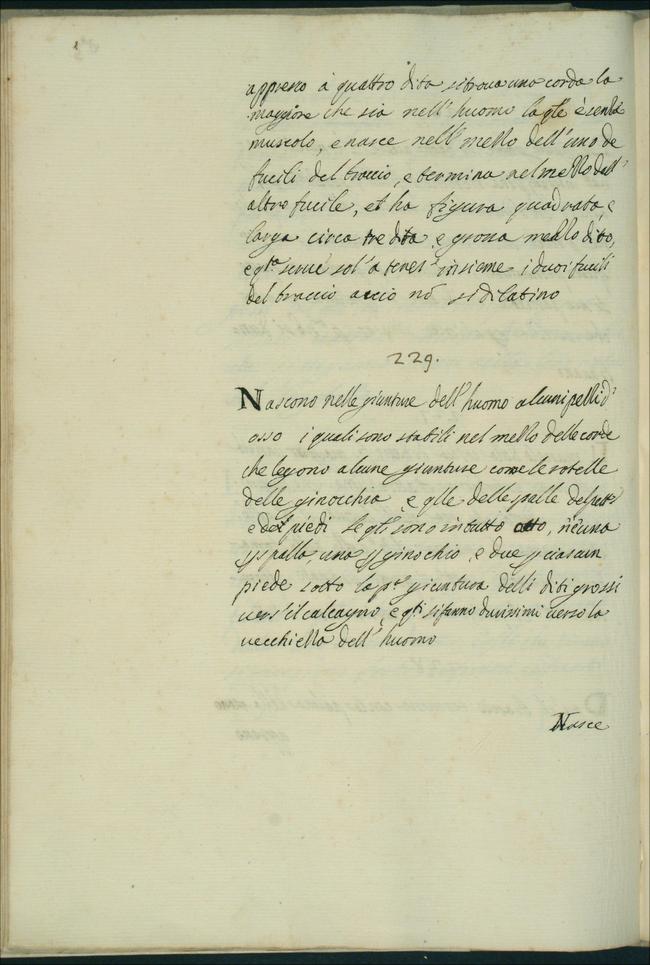 appresso à quattro dita si troua una corda la
maggiore che sia nell'huomo la qle è senza
muscolo, e nasce nell mezzo dell'uno de
fucili del braccio, e termina nel mezzo dell'
altro fucile, et ha figura quadrata, e
larga circa tre dita, e grossa mezzo dito,
e qta serue sol'a tener' insieme i duoi fucili
del braccio accio nō si dilatino
229.
Nascono nelle giunture dell'huomo alcuni pezzi d'
osso i quali sono stabili nel mezzo delle corde
che legono alcune giunture come le rotelle
delle ginocchia, e qlle delle spalle
e de piedi le qli sono in tutto otto, n'è una
p spalla, una p ginochio, e due p ciascun
piede sotto la pa giuntura delli diti grossi
uers'il calcagno, e qti si fanno durissimi uerso la
uecchiezza dell'huomo
Nasce